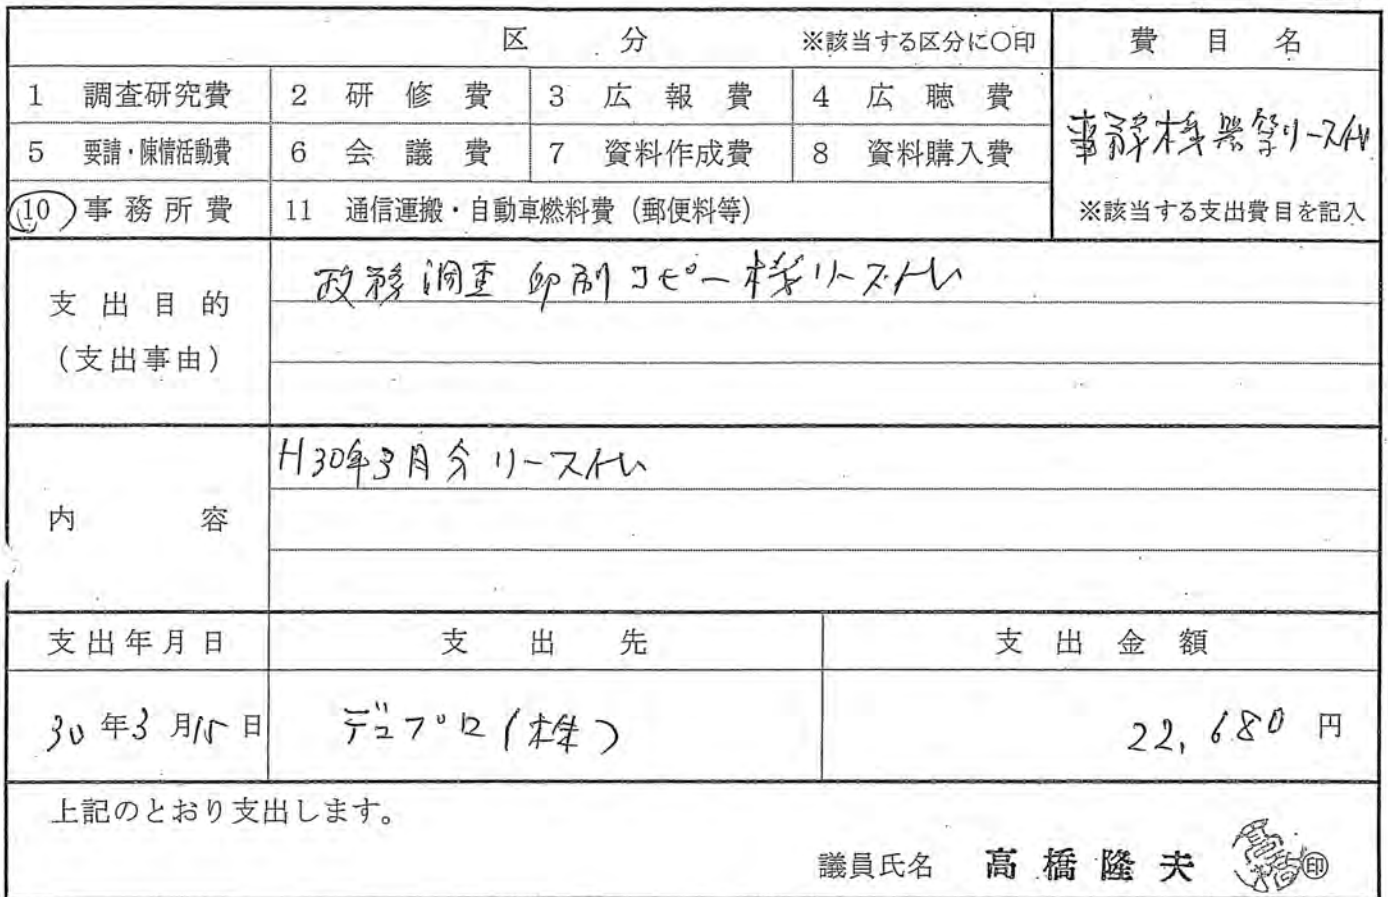 区 分 ※該当する区分に○印 費 目 名
1 調査研究費 2 研 修 費 3 広 報 費 4 広 聴 費
5 要請・陳情活動費 6 会 議 費 7 資料作成費 8 資料購入費
事務機器等リース代
10 事 務 所 費 11 通信運搬・自動車燃料費(郵便料等) ※該当する支出費目を記入
支 出 目 的
(支出事由)
政務調査 印刷コピー機リース代
内 容
H30年3月分リース代
支出年月日 支 出 先 支 出 金 額
30年3月15日 デュプロ(株) 22,680円
上記のとおり支出します。
議員氏名 高橋隆夫 印